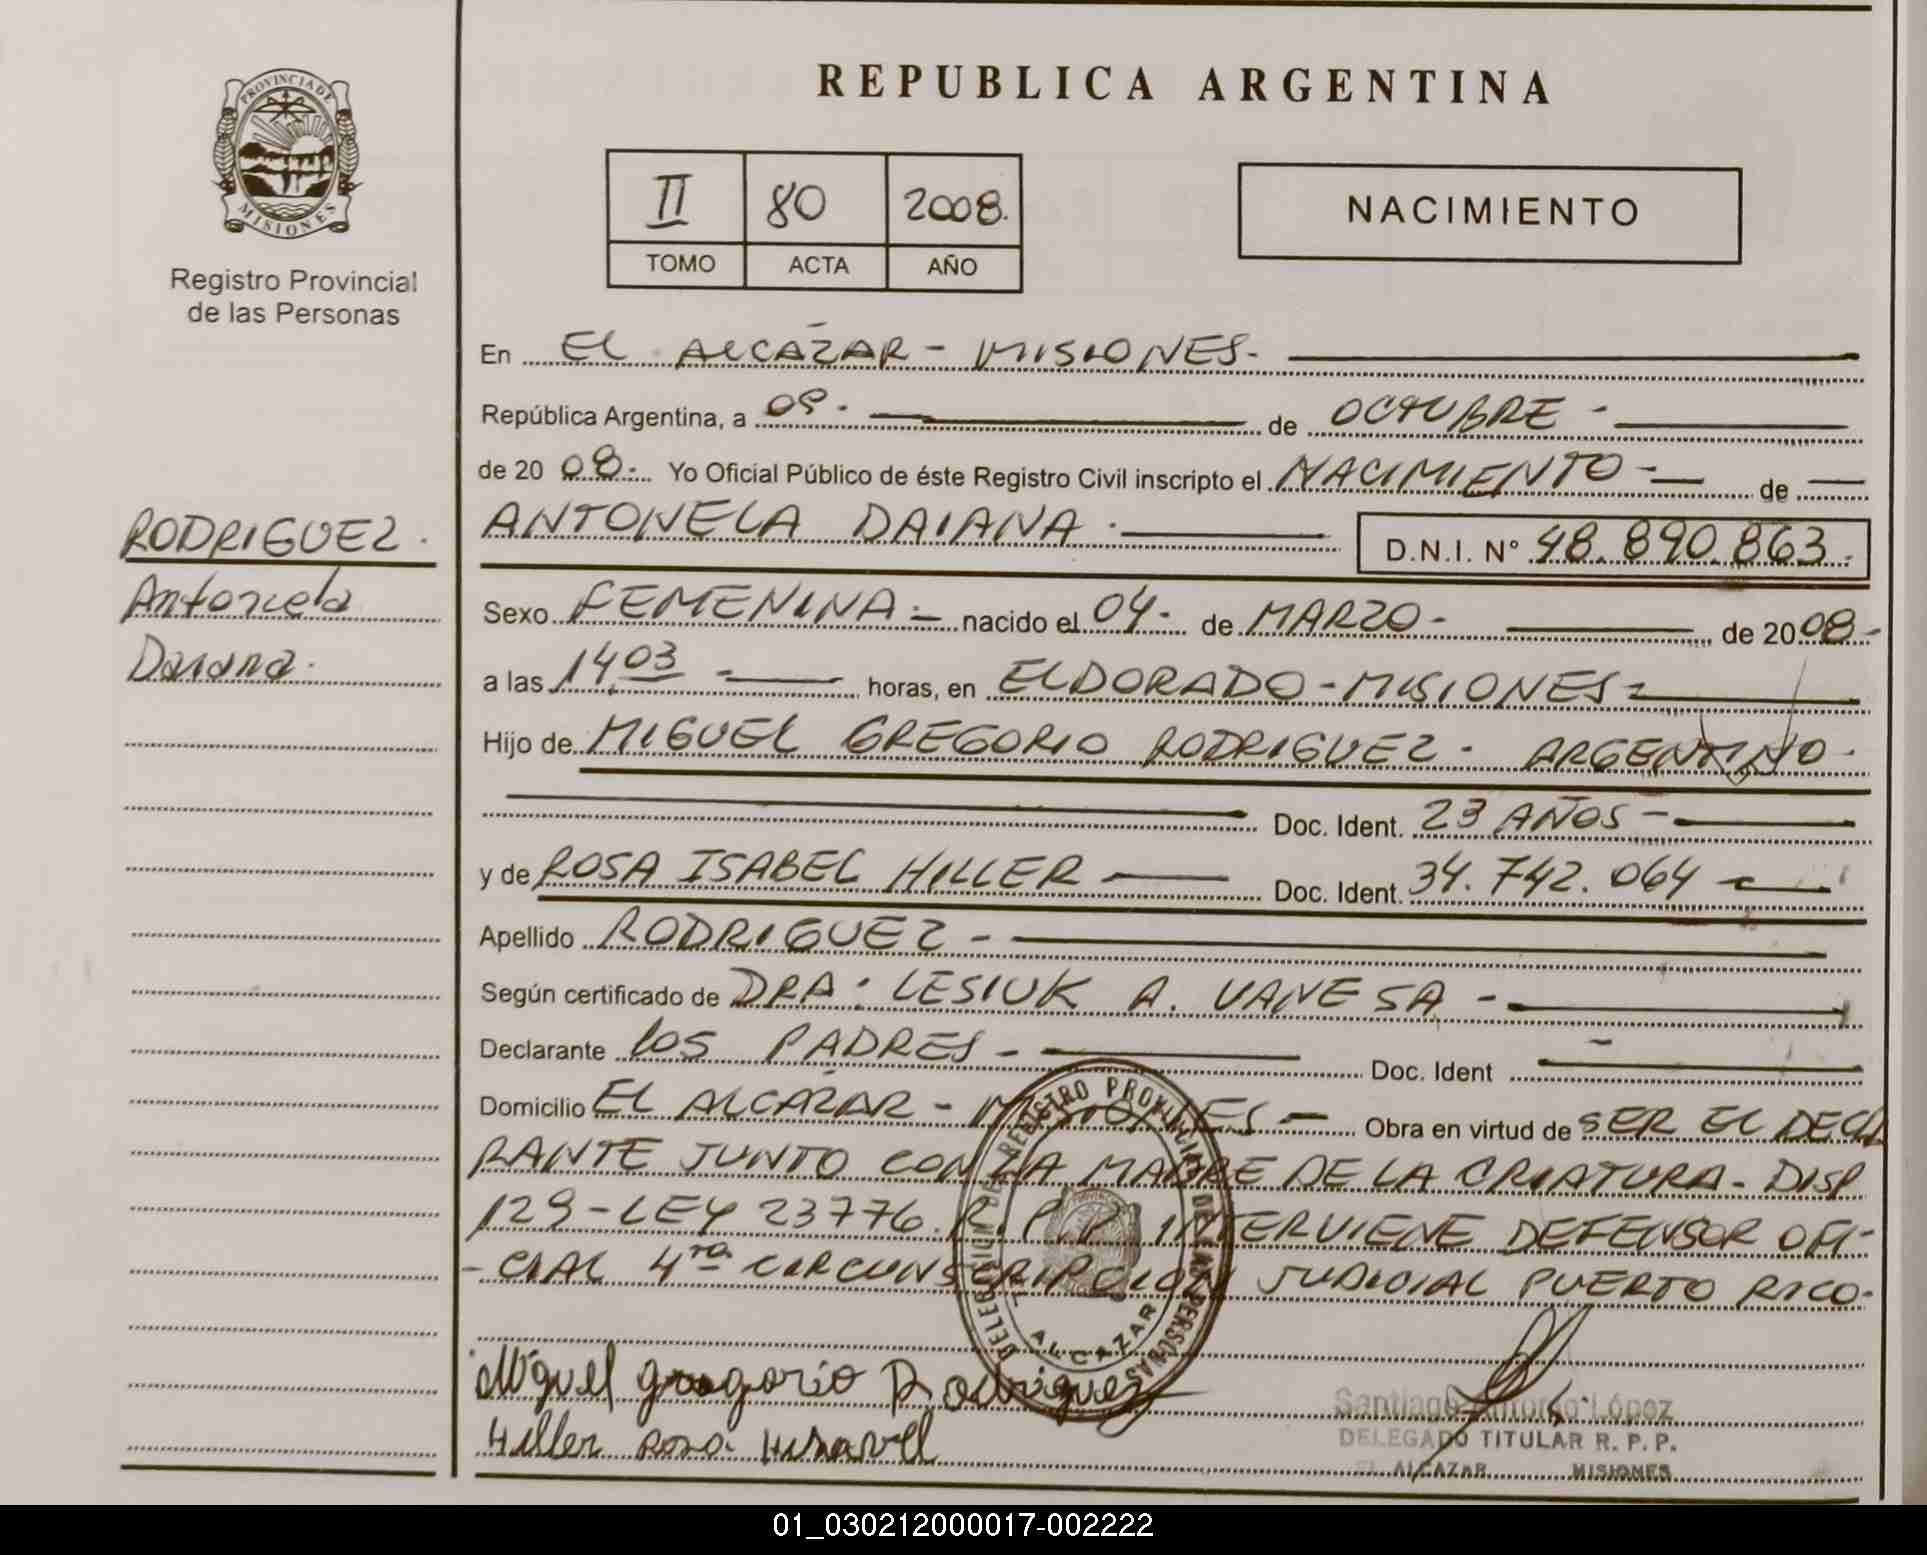 PROVINCIA DE
MISIONES
Registro Provincial
de las Personas
RODRIGUEZ.
Antonela
Daiana.
REPUBLICA ARGENTINA
II 80 2008.
TOMO ACTA AÑO
NACIMIENTO
En EL ALCÁZAR - MISIONES-
República Argentina, a 09. de OCTUBRE -
de 20 08. Yo Oficial Público de éste Registro Civil inscripto el NACIMIENTO - de
ANTONELA DAIANA. D.N.I. N° 48.890.863.
Sexo FEMENINA - nacido el 04. de MARZO - de 20 08-
a las 14,03 - horas, en ELDORADO - MISIONES-
Hijo de MIGUEL GREGORIO RODRIGUEZ - ARGENTINO.
Doc. Ident. 23 AÑOS -
y de ROSA ISABEL HILLER Doc. Ident. 34.742.064 -
Apellido RODRIGUEZ -
Según certificado de DRA: LESIUK A. VANESA -
Declarante los PADRES - Doc. Ident -
Domicilio EL ALCÁZAR - MISIONES - Obra en virtud de SER EL DECLA
RANTE JUNTO CON LA MADRE DE LA CRIATURA - DISP
129 - LEY 23776. R.P.P. INTERVIENE DEFENSOR OFI-
- CIAL 4ra CIRCUNSCRIPCION JUDICIAL PUERTO RICO.
DELEGACION DE REGISTRO PROVINCIAL DE LAS PERSONAS
ALCAZAR
Miguel gregorio Rodriguez
Hiller Rosa
Santiago Antonio López
DELEGADO TITULAR R. P. P.
EL ALCAZAR MISIONES
01_030212000017-002222